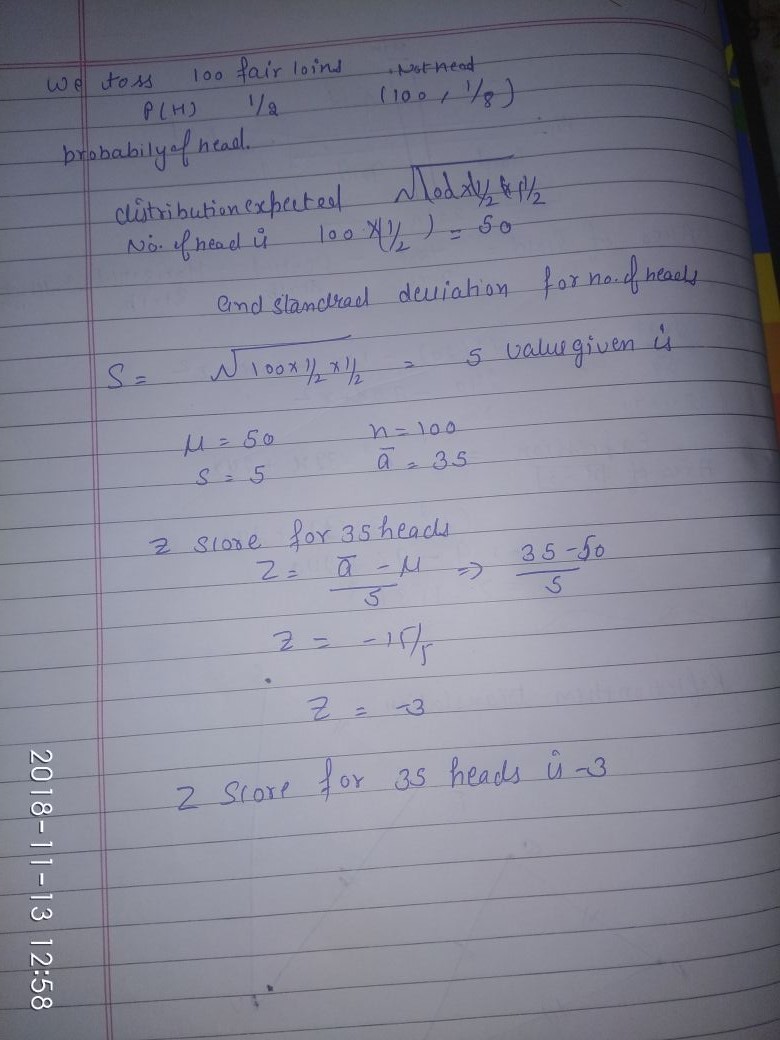 We toss 100 fair loins Not head
P(H) 1/2 (100, 1/8)
probabily of head.
distribution expected √100x1/2x1/2
No. of head is 100x(1/2) = 50
and standrad deviation for no. of heads
S = √100x1/2x1/2 = 5 value given is
μ = 50 n = 100
S = 5 ā = 35
Z score for 35 heads
Z = ā - μ / S => 35 - 50 / 5
Z = -15/5
Z = -3
Z score for 35 heads is -3
2018-11-13 12:58